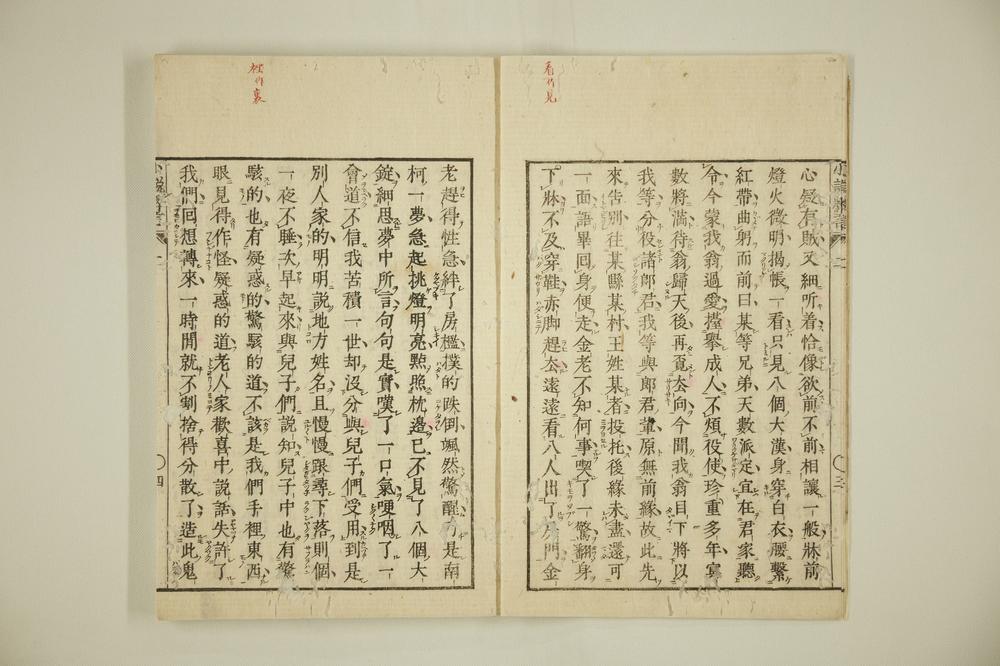 看作見
心疑有賊又細听着恰像欲前不前相讓一般牀前
燈火微明揭帳一看只見八個大漢身穿白衣腰繫
紅帶曲躬而前曰某等兄弟天數派定宜在君家聽
令今蒙我翁過愛擡擧成人不煩役使珍重多年宴
數將滿待翁歸天後再覔去向今聞我翁目下將以
我等分役諸郎君我等與郎君輩原無前緣故此先
來告別往某縣某村王姓某者投托後緣未盡還可
一面語畢回身便走金老不知何事喫了一驚翻身
下牀不及穿鞋赤脚趕去遠遠看八人出了房門金
裡作裏
老趕得性急絆了房檻撲的跌倒颯然驚醒乃是南
柯一夢急起挑燈明亮㸃照枕邊已不見了八個大
錠細思夢中所言句句是實嘆了一口氣哽咽了一
會道不信我苦積一世却沒分與兒子們受用到是
別人家的明明說地方姓名且慢慢跟尋下落則個
一夜不睡次早起來與兒子們說知兒子中也有驚
駭的也有疑惑的驚駭的道不該是我們手裡東西
眼見得作怪疑惑的道老人家歡喜中說話失許了
我們回想轉來一時間就不割捨得分散了造此鬼